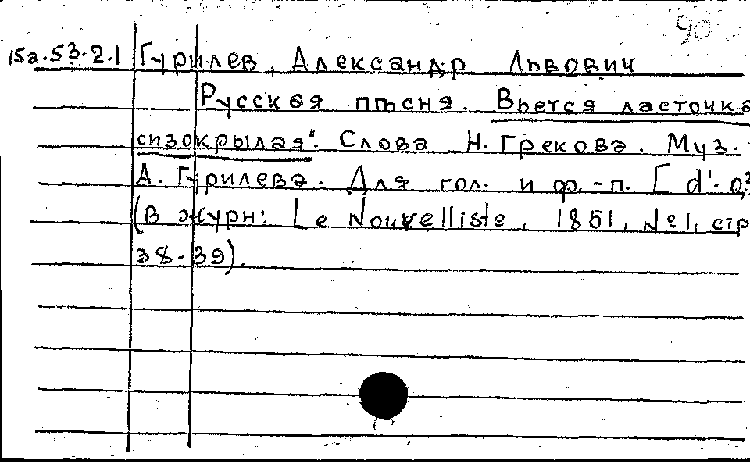 90
15а.53.2.1 Гурилев, Александр Львович
Русская пѣсня. Вьется ласточка
сизокрылая". Слова Н. Грекова. Муз.
А. Гурилева. Для гол. и ф.-п. [d'-
(В журн: Le Nouvelliste, 1851, №1, стр
38-39).